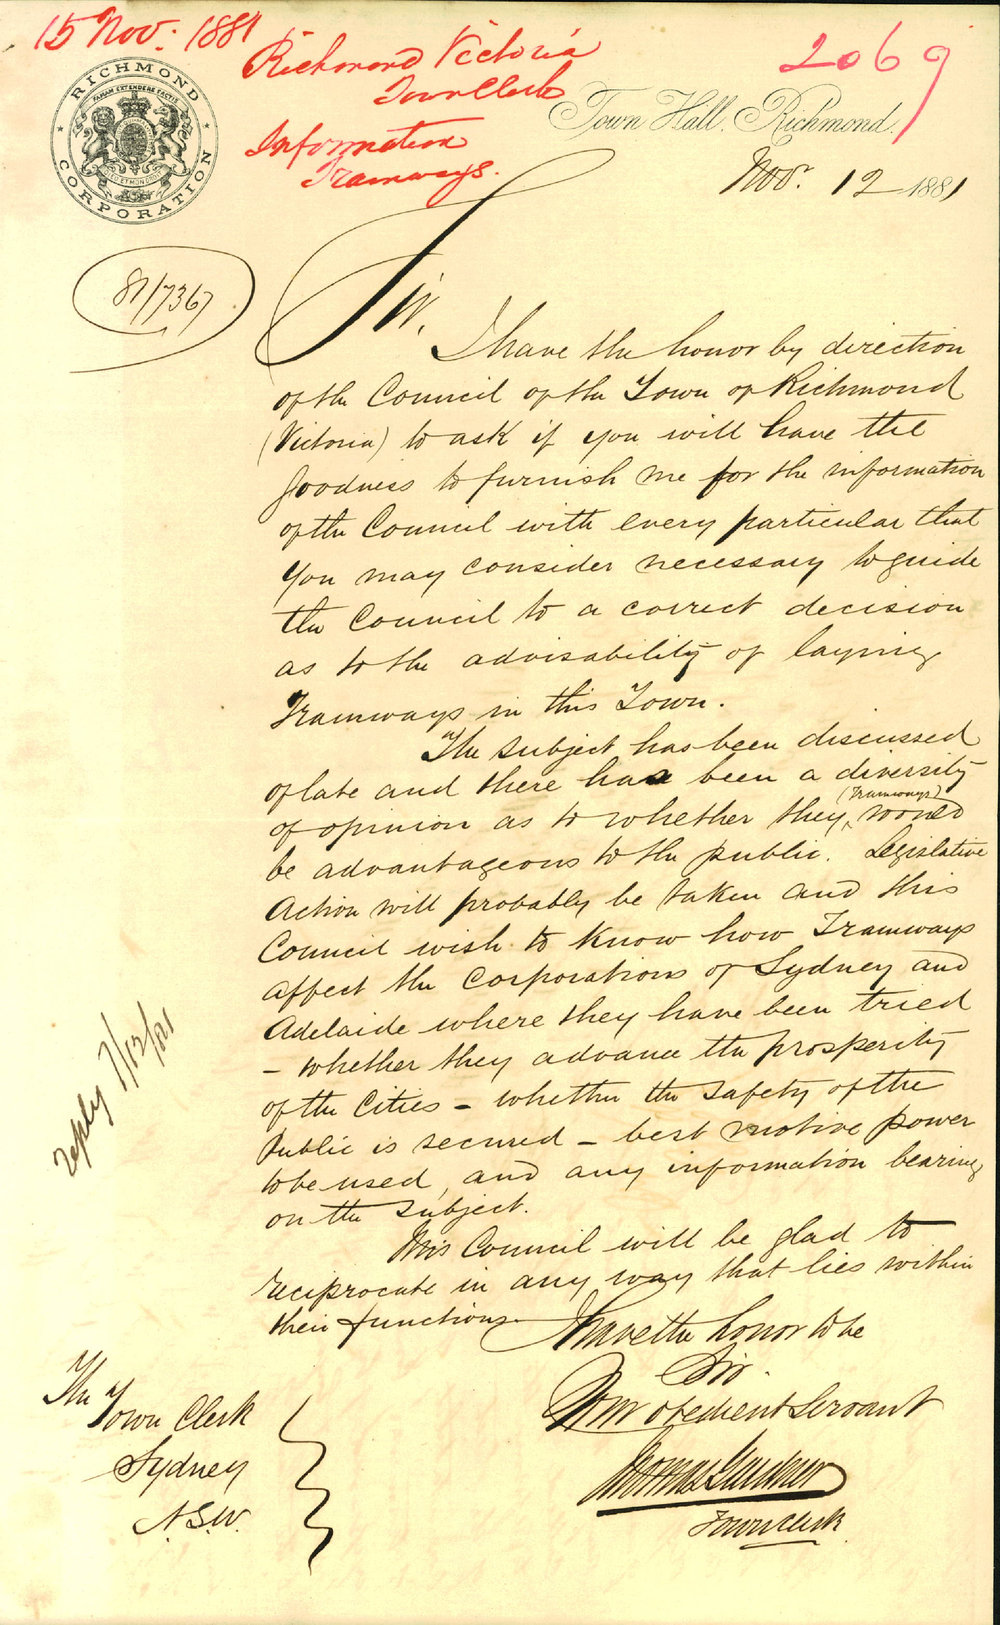 15 Nov: 1881
Richmond Victoria
Town Clerk
Information
Tramways.
2069
RICHMOND
CORPORATION
Town Hall, Richmond.
Nov. 12 1881
81/7367
Sir.
I have the honor by direction
of the Council of the Town of Richmond
(Victoria) to ask if you will have the
goodness to furnish me for the information
of the Council with every particular that
you may consider necessary to guide
the Council to a correct decision
as to the advisability of laying
Tramways in this Town.
The subject has been discussed
of late and there has been a diversity
of opinion as to whether they (Tramways) would
be advantageous to the public. Legislative
Action will probably be taken and this
Council wish to know how Tramways
affect the Corporations of Sydney and
Adelaide where they have been tried
- whether they advance the prosperity
of the Cities - whether the safety of the
Public is secured - best motive power
to be used, and any information bearing
on the subject.
This Council will be glad to
reciprocate in any way that lies within
their functions
I have the honor to be
Sir.
Your obedient Servant
Town Clerk
reply 7/12/81
The
Town Clerk
Sydney
N.S.W.